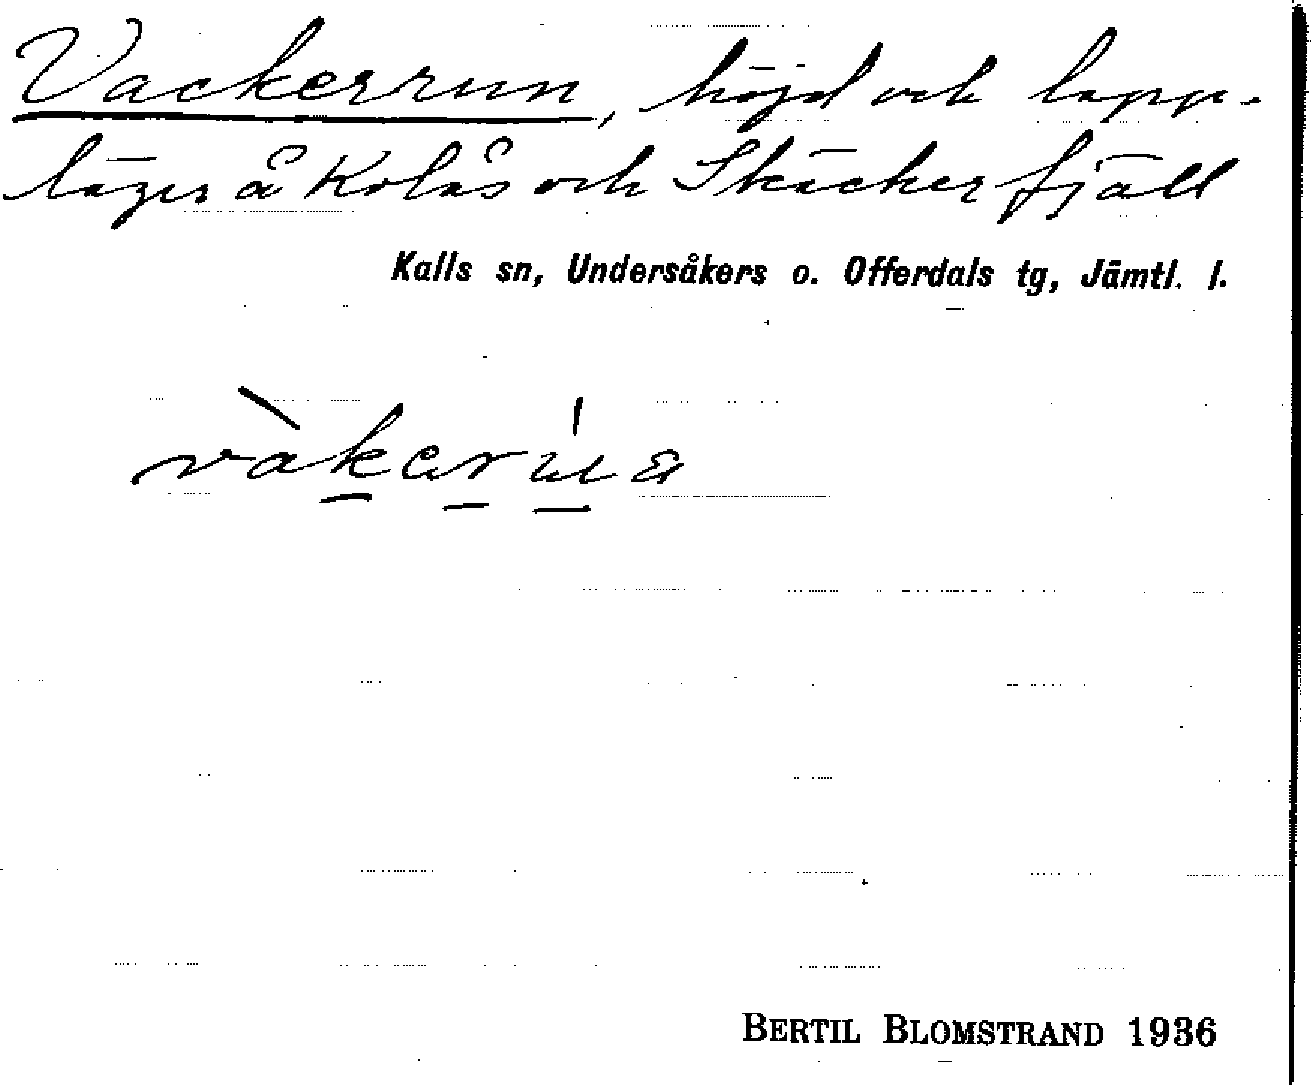 Vackerrun, höjd och lapp-
läger å Kolås och Skäckerfjäll
Kalls sn, Undersåkers o. Offerdals tg, Jämtl. l.
BERTIL BLOMSTRAND 1936